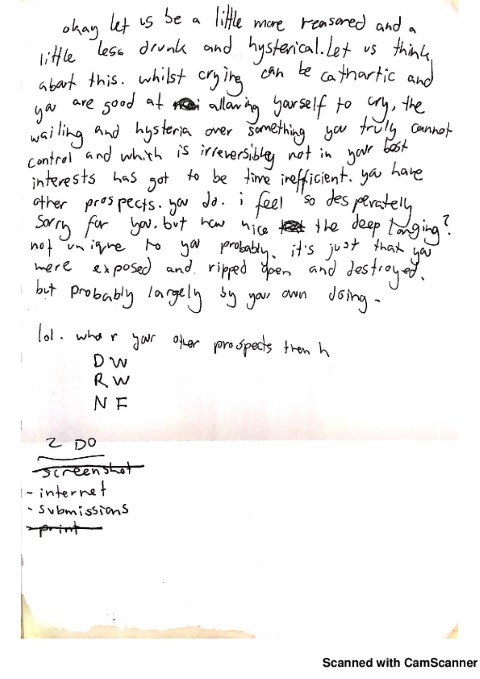 okay let us be a little more reasoned and a
little less drunk and hysterical. Let us think
about this. whilst crying can be cathartic and
you are good at allowing yourself to cry, the
wailing and hysteria over something you truly cannot
control and which is irreversibly not in your best
interests has got to be time inefficient. you have
other prospects. you do. i feel so desperately
sorry for you. but how nice the deep longing?
not unique to you probably. it's just that you
were exposed and ripped open and destroyed.
but probably largely by your own doing.
lol. who r your other prospects then h
DW
RW
NF
2 DO
screenshot
- internet
- submissions
- print
Scanned with CamScanner